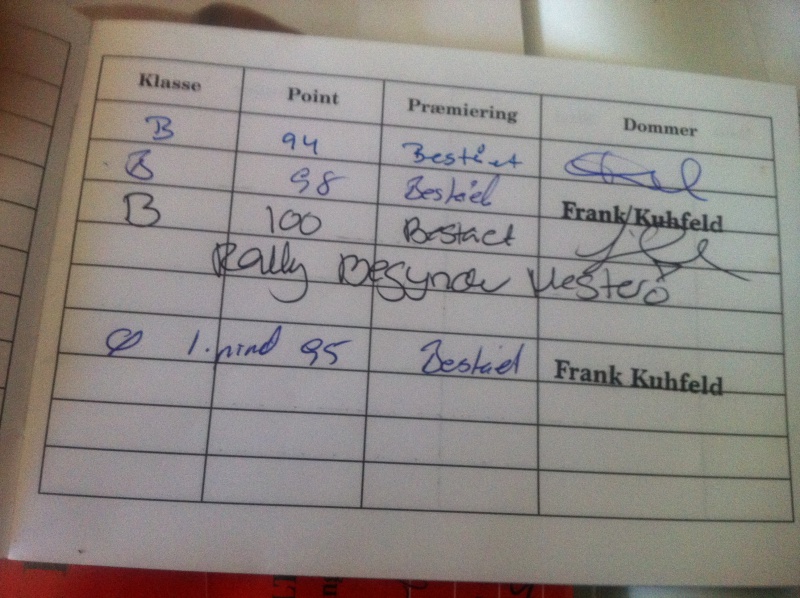 Klasse Point Præmiering Dommer
B 94 Bestået
B 98 Bestået Frank Kuhfeld
B 100 Bestået
Rally Begynder
1. pind 95 Bestået Frank Kuhfeld